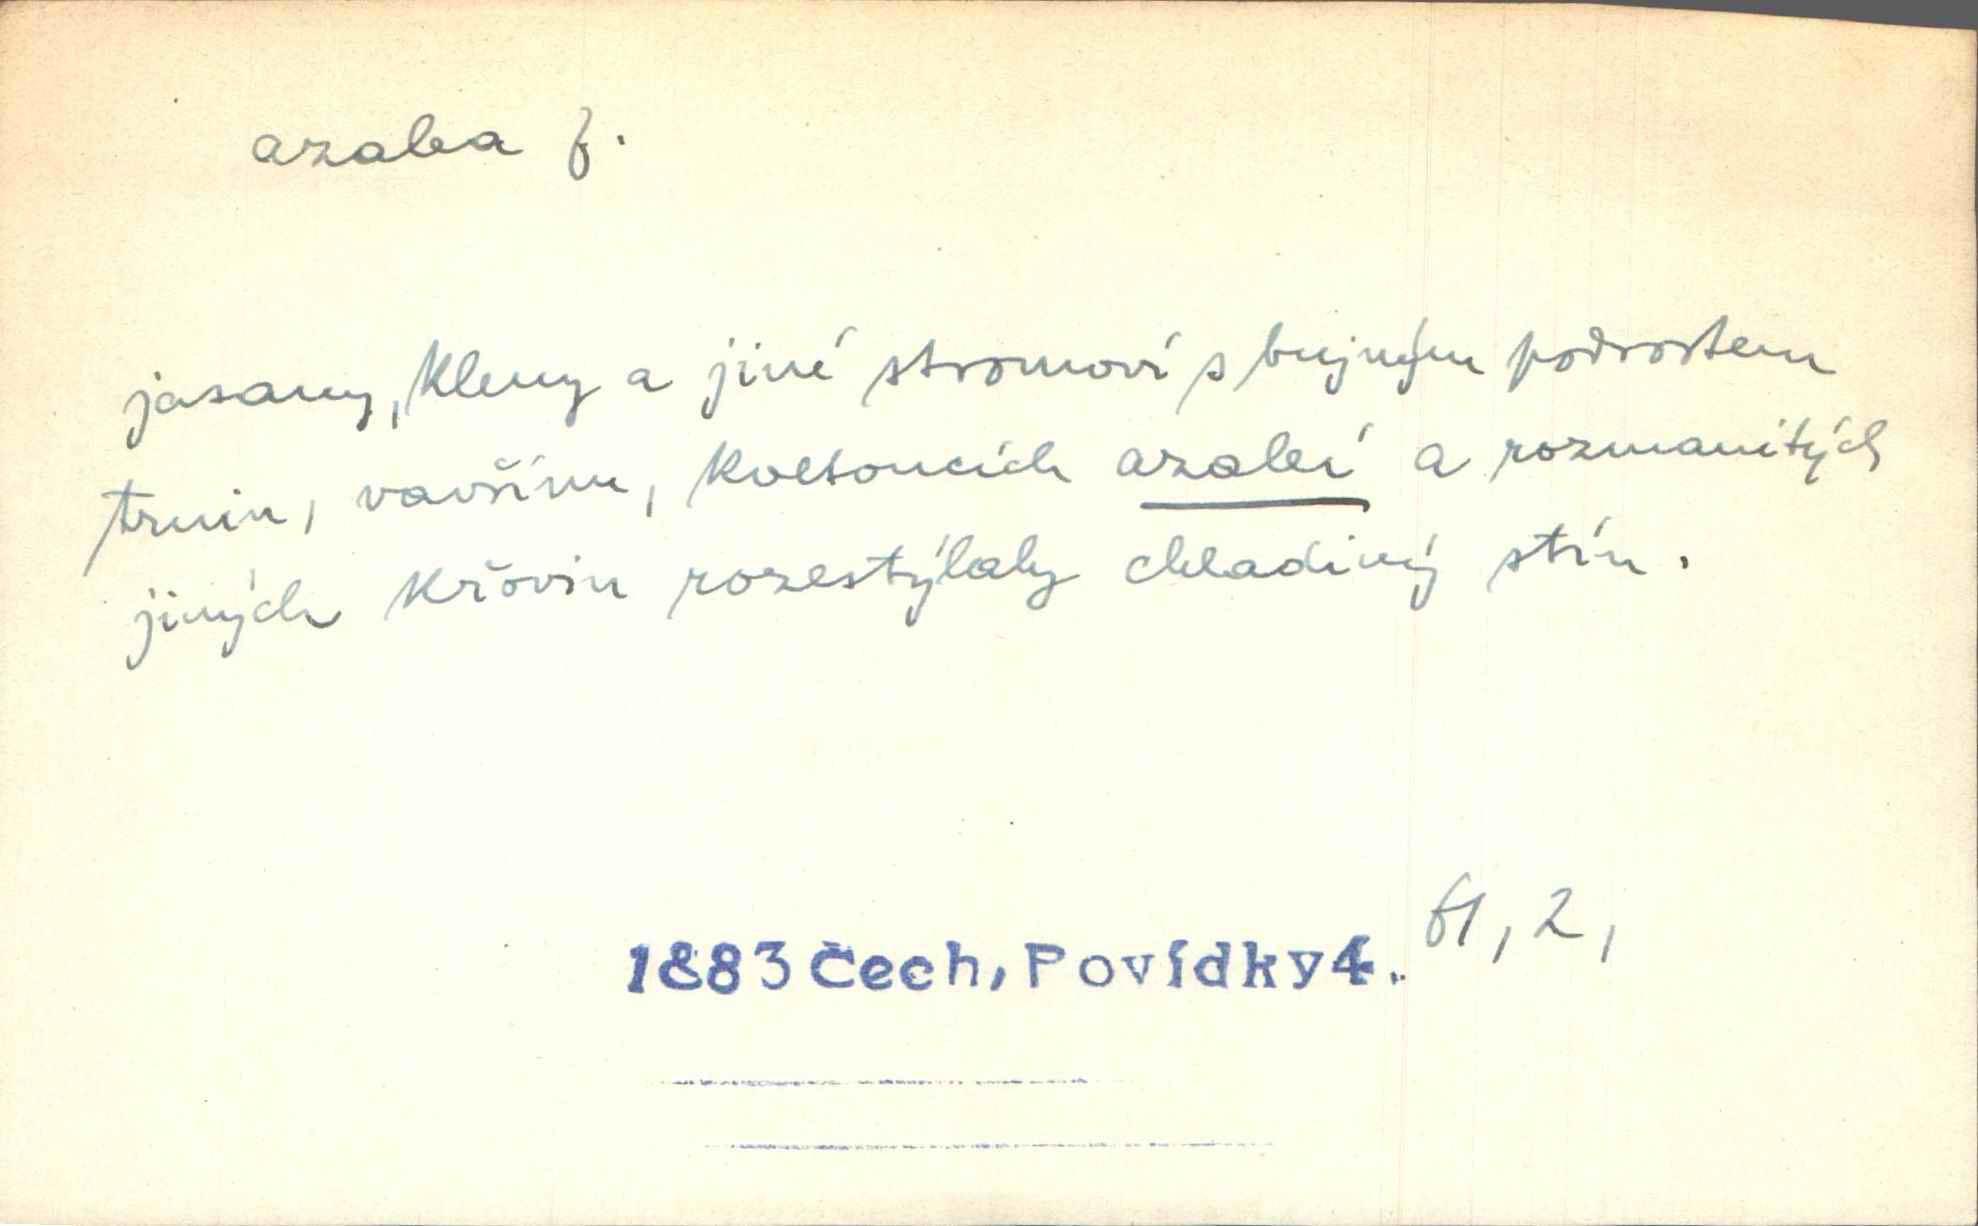 azalea f.
jasany, kleny a jiné stromoví s bujným podrostem
trnin, vavřínu, kvetoucích azaleí a rozmanitých
jiných křovin rozestýlaly chladivý stín.
1883 Čech, Povídky 4. 61, 2,